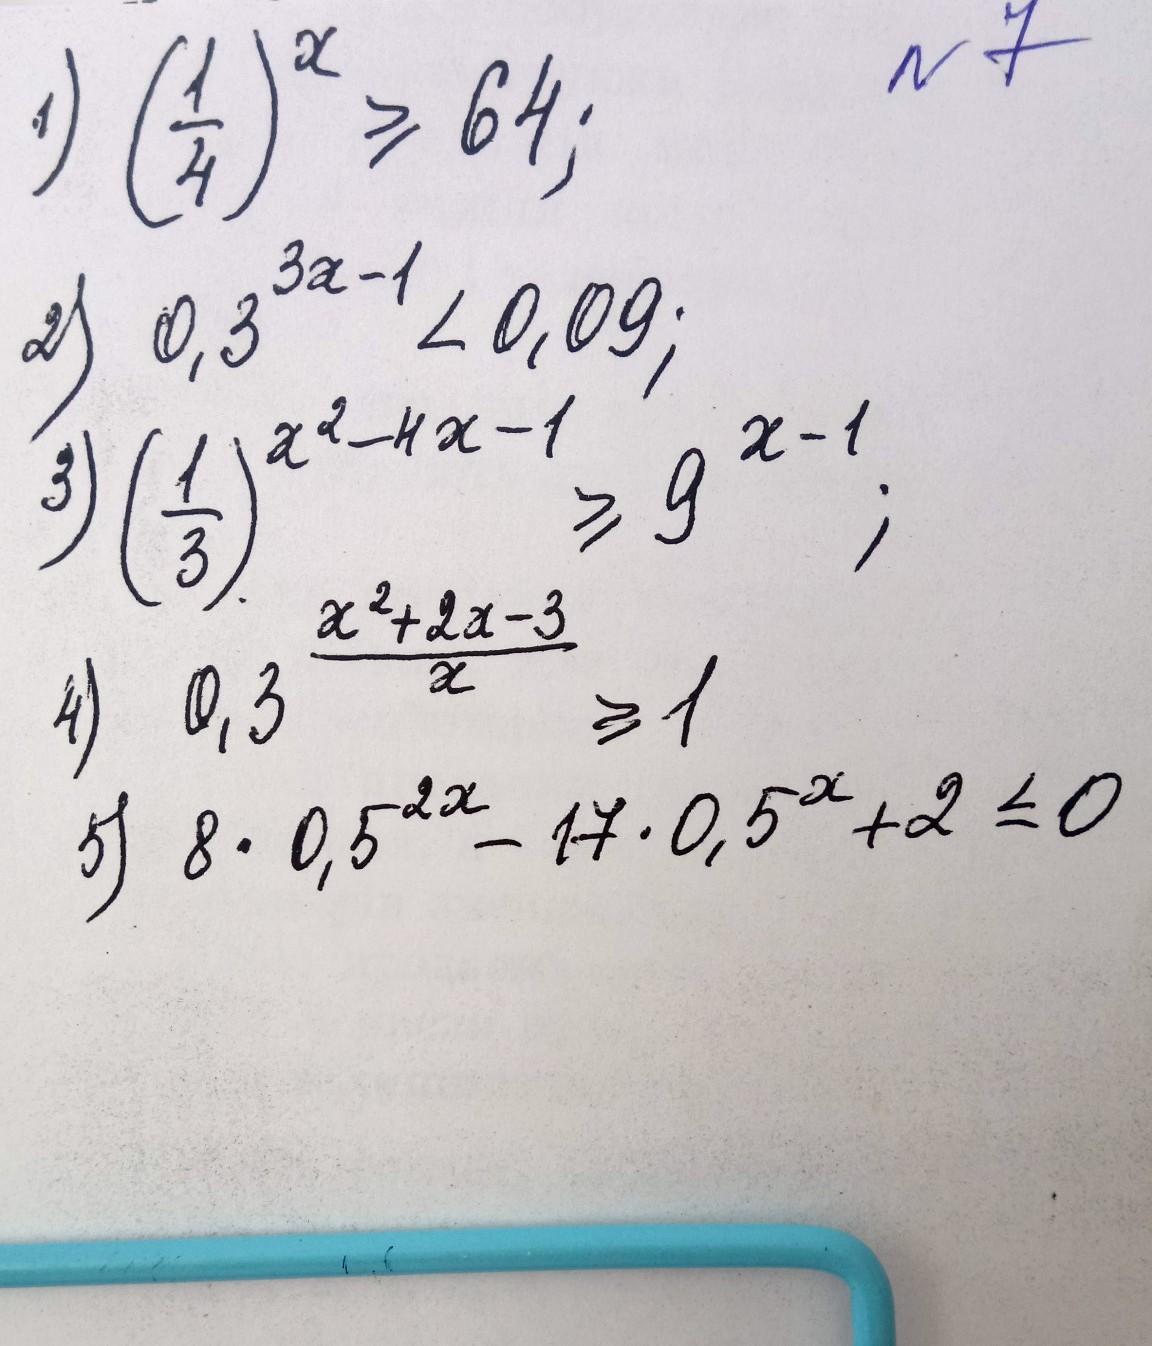 № 7
1) (1/4)^x ⩾ 64;
2) 0,3^(3x-1) < 0,09;
3) (1/3)^(x²-4x-1) ⩾ 9^(x-1);
4) 0,3^((x²+2x-3)/x) ⩾ 1
5) 8·0,5^(2x) - 17·0,5^x + 2 ≤ 0